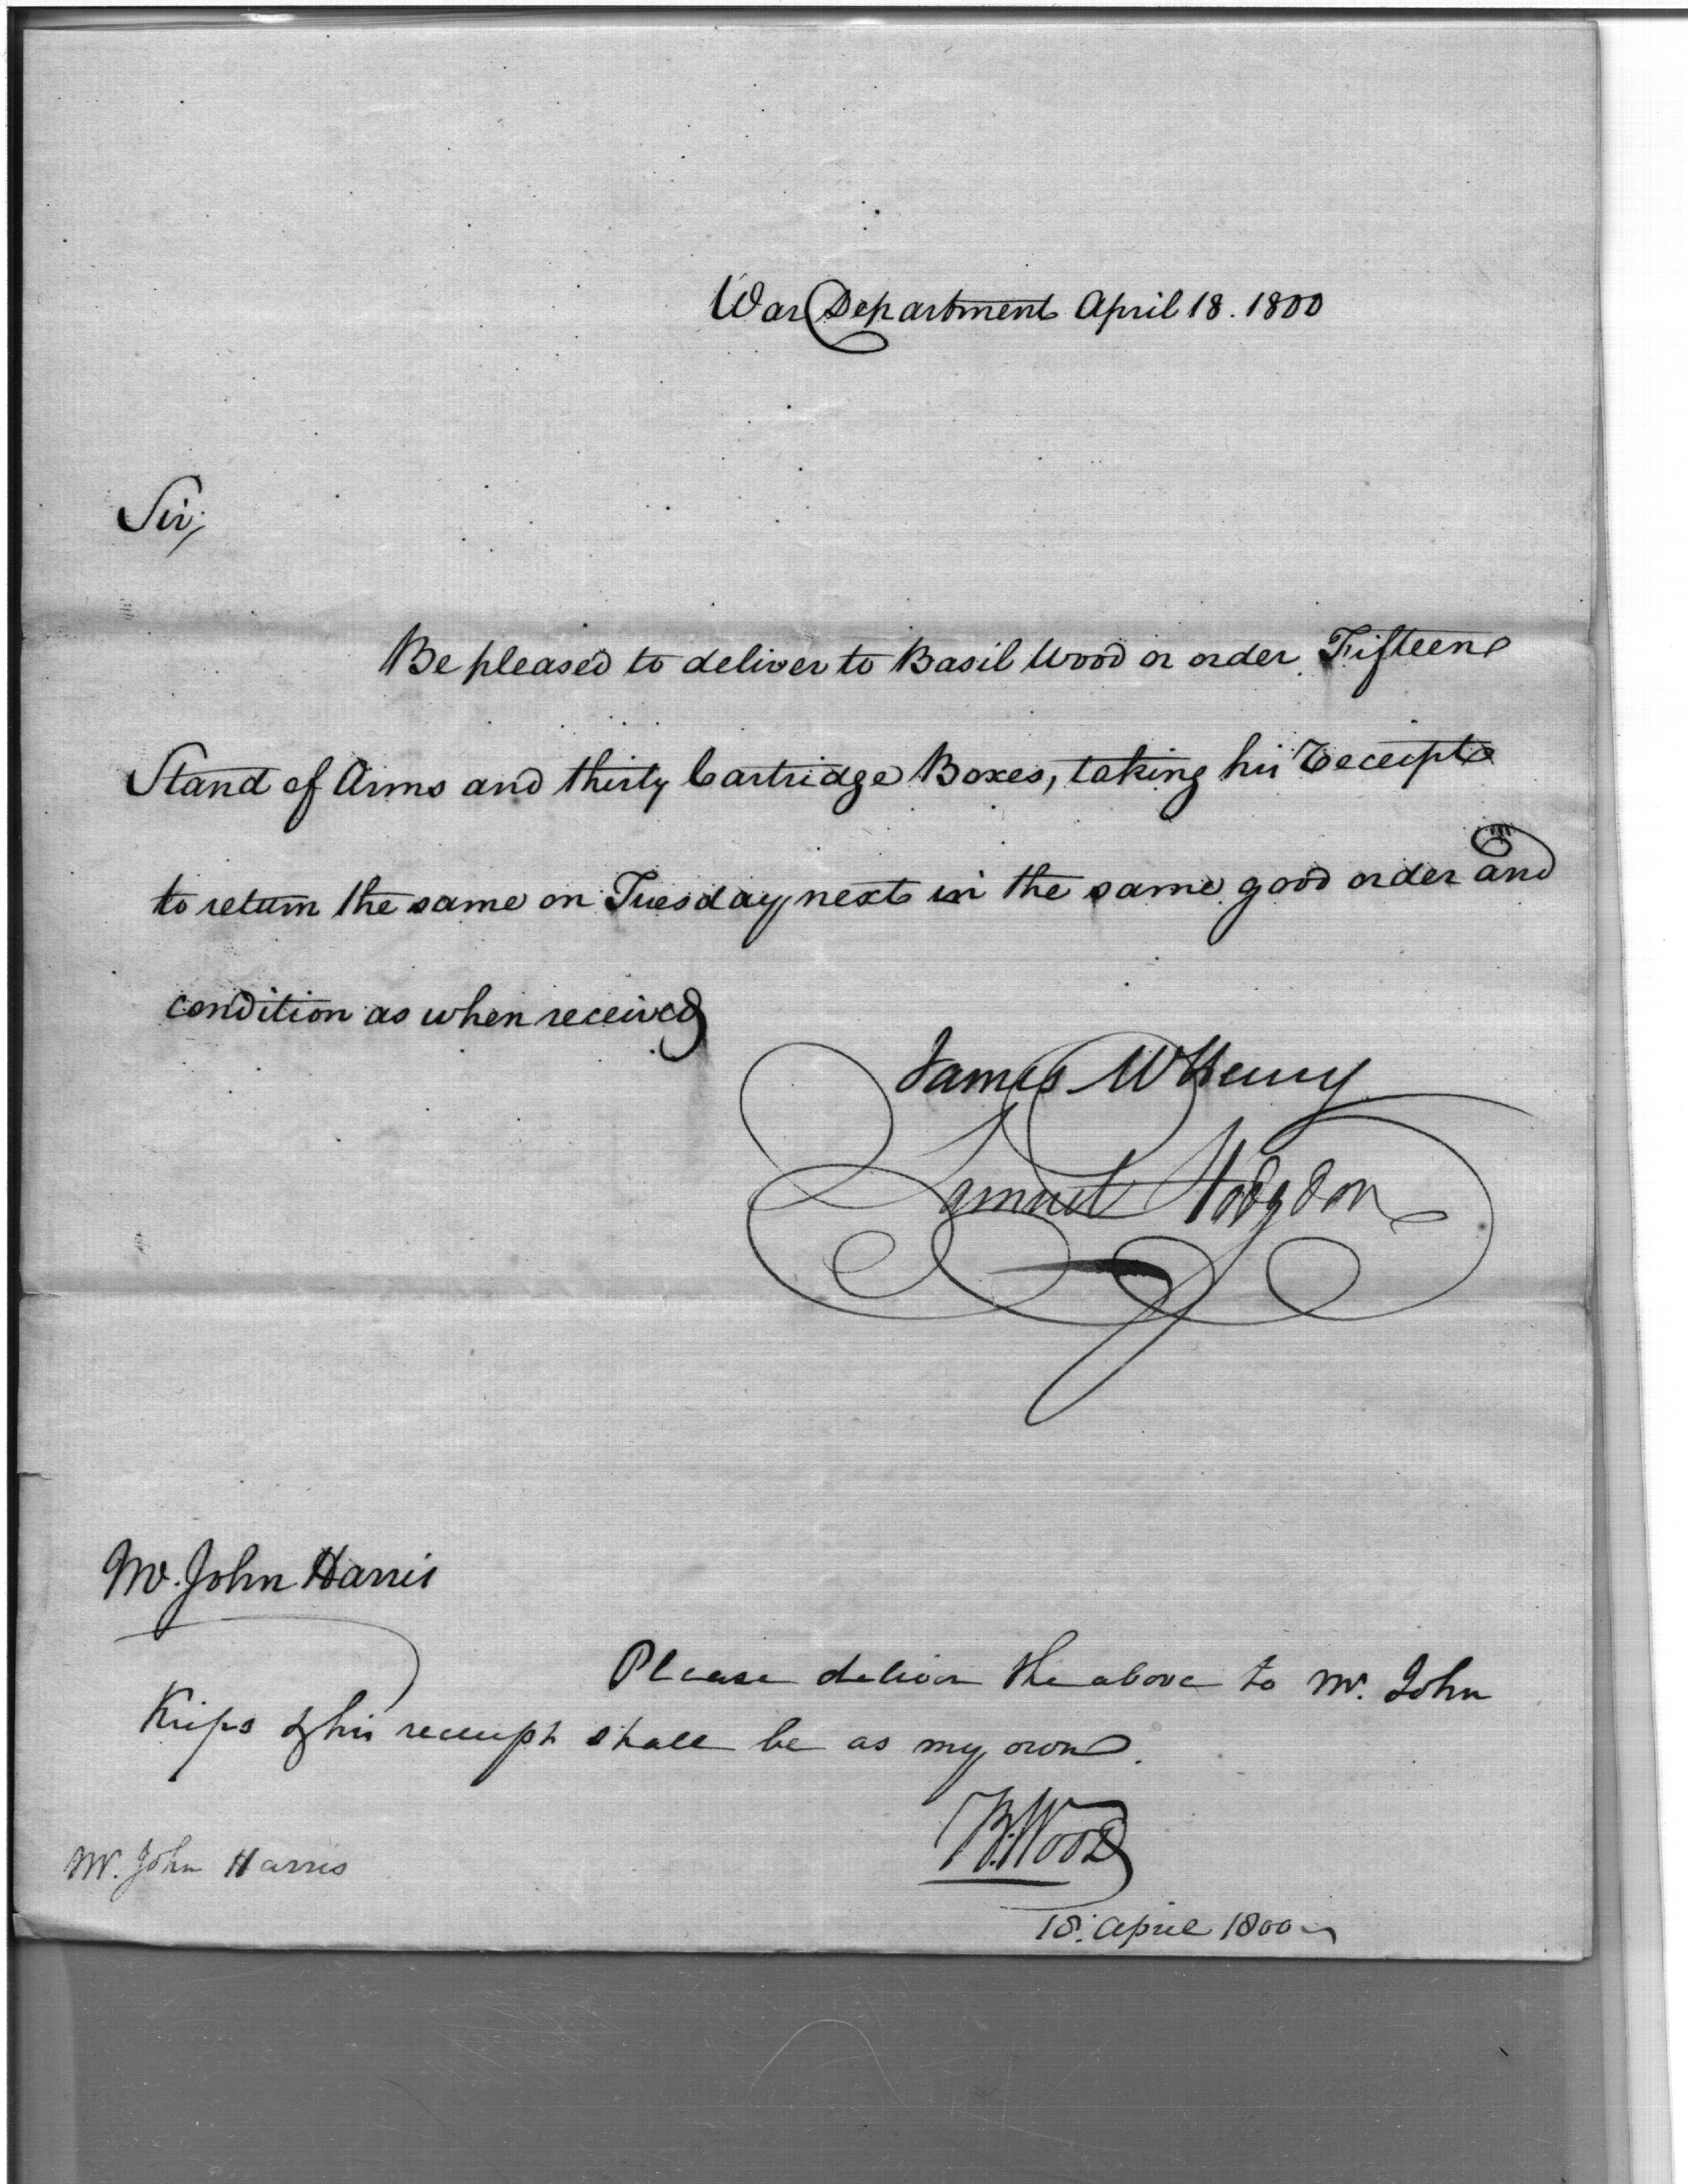 War Department April 18. 1800
Sir,
Be pleased to deliver to Basil Wood or order Fifteen
Stand of Arms and thirty Cartridge Boxes, taking his receipt
to return the same on Tuesday next in the same good order and
condition as when received
James McHenry
Samuel Hodgdon
Mr. John Harris
Please deliver the above to Mr. John
Krips & his receipt shall be as my own.
B. Wood
Mr. John Harris
18. April 1800